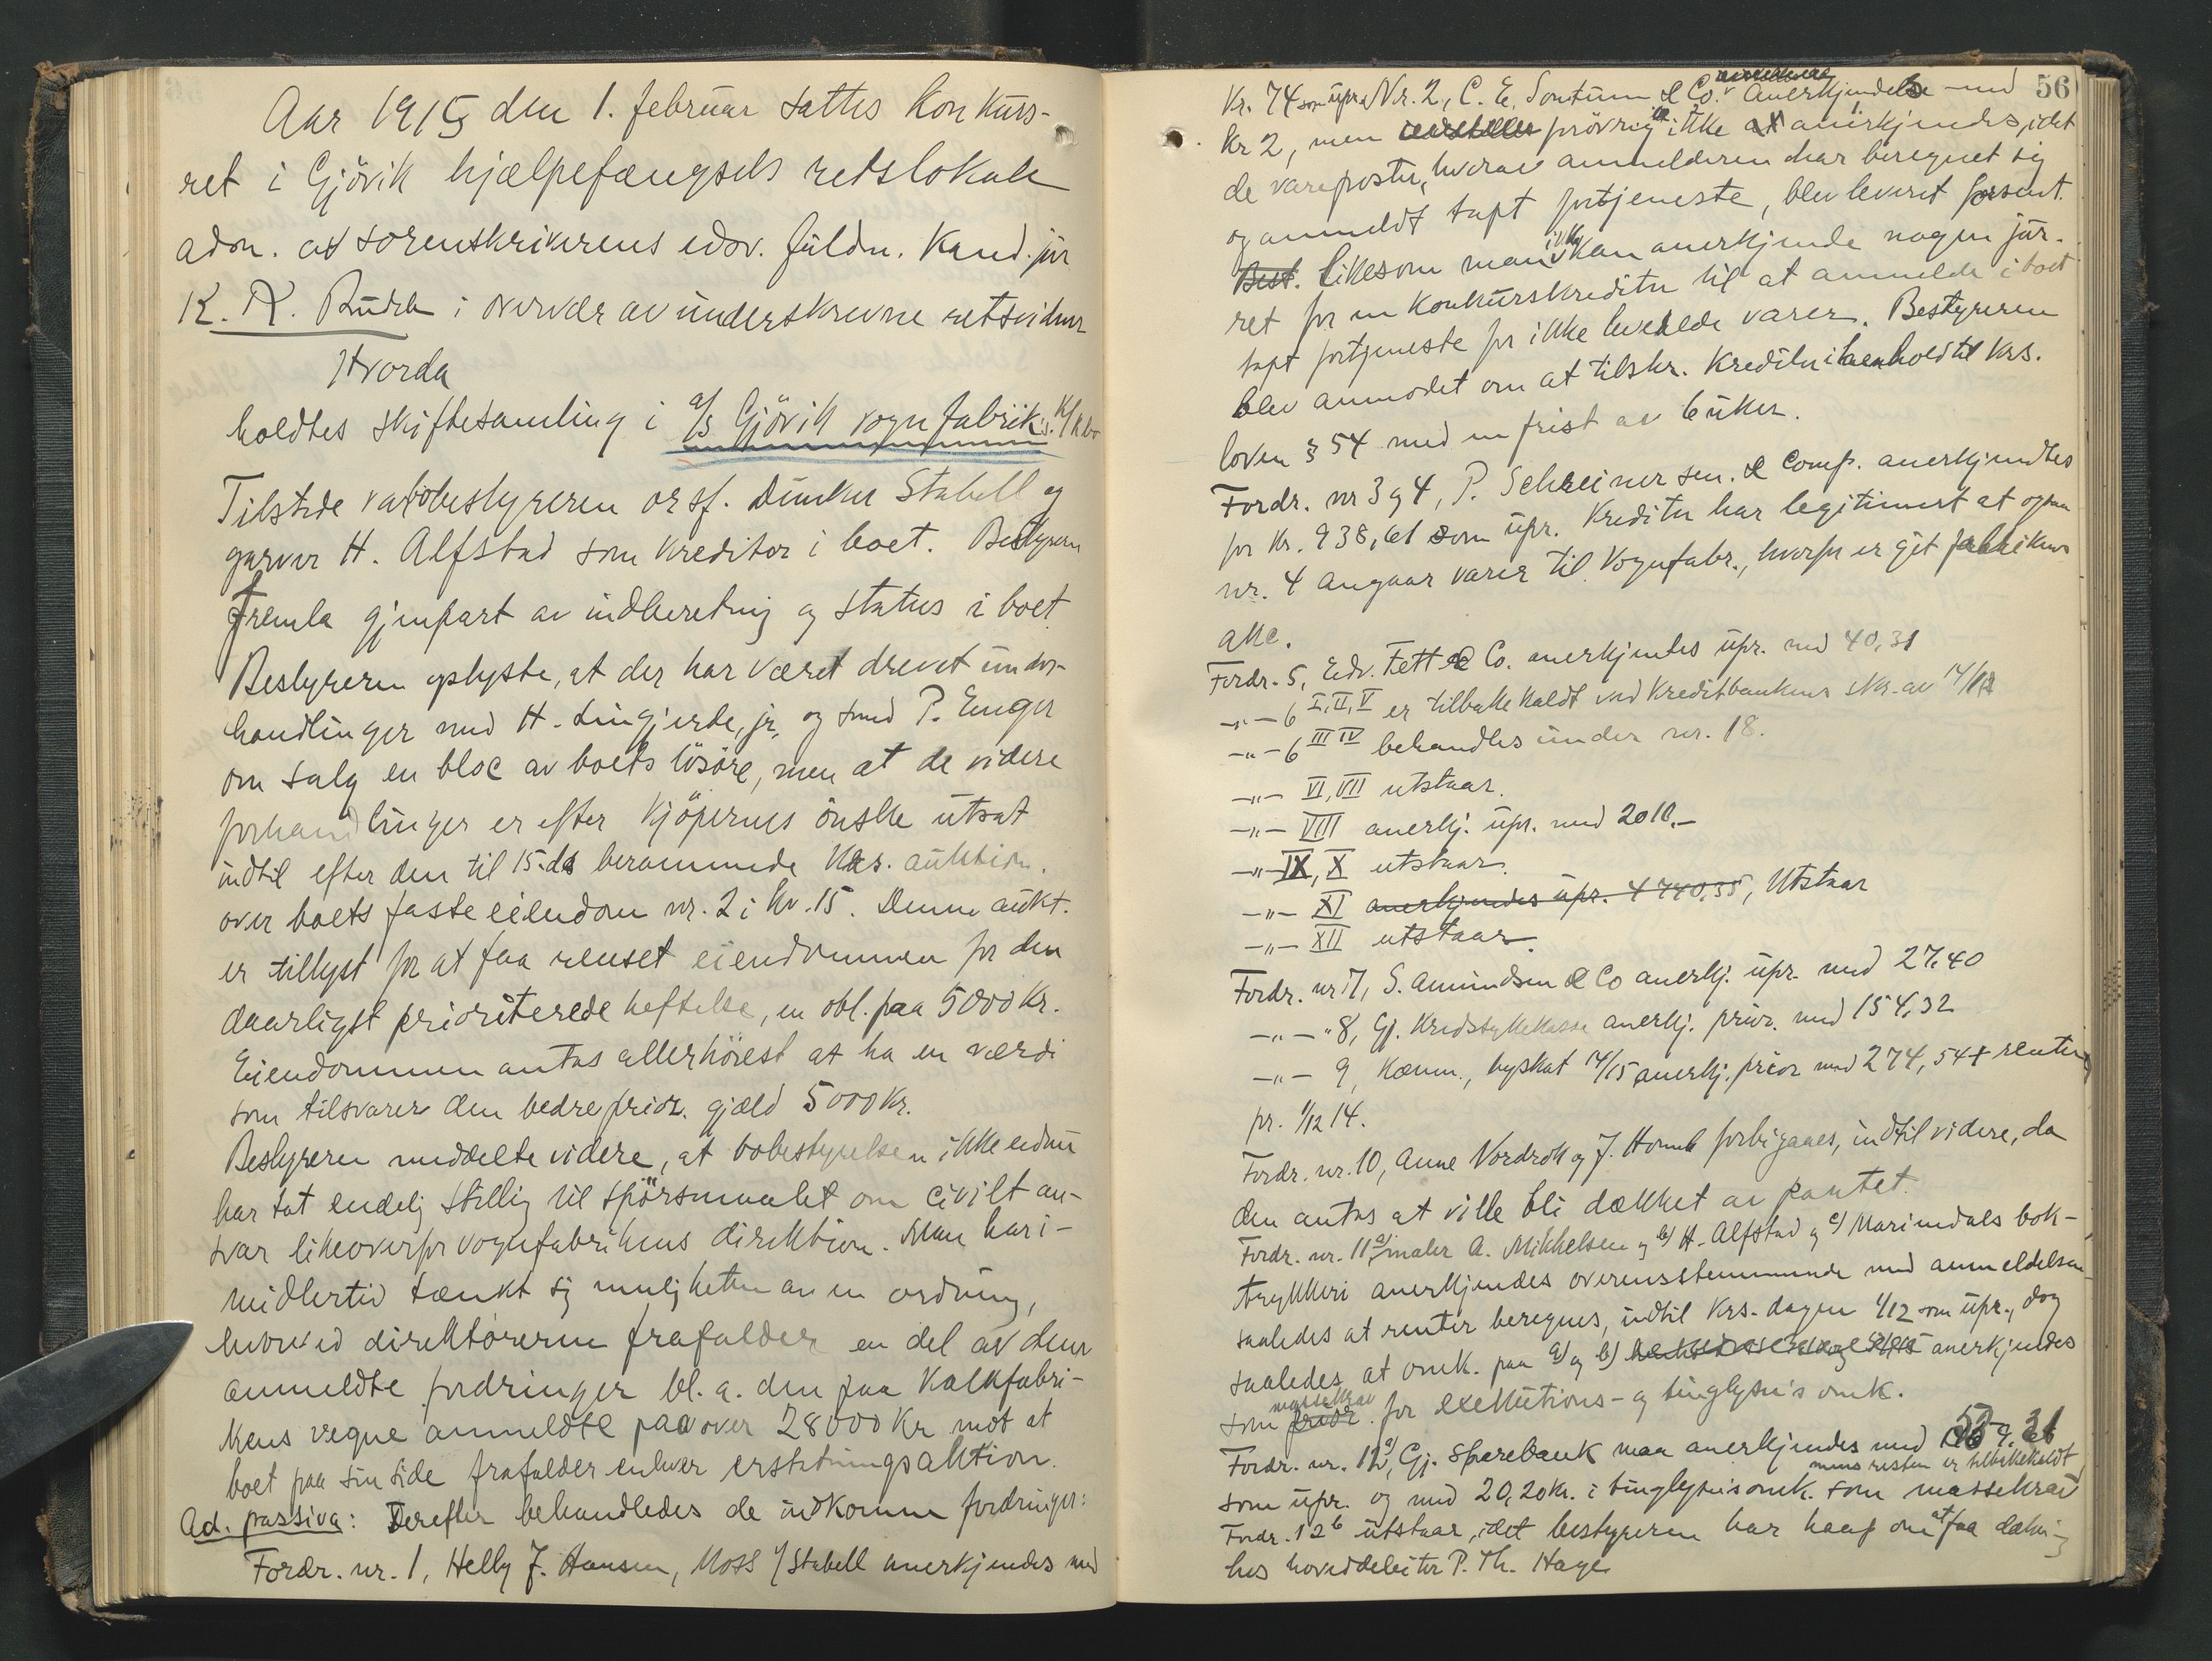 Aar 1915 den 1. februar sattes Konkurs-
ret i Gjövik hjælpefængsels retslokale
adm. av sorenskriverens edsv. fuldm. Kand. jur
K. R. Rudá i overvær av underskrevne retsvidner
Hvorda
holdtes skiftesamling i a/s Gjövik vognfabriks K/kbo
Tilstede var bobestyreren orsf. Dunker Stabell og
garver H. Alfstad som kreditor i boet. Bestyreren
fremla gjenpart av indberetning og status i boet.
Bestyreren oplyste, at der har været drevet under-
handlinger med H. Lingjerde, jr, og smed P. Enger
om salg en bloc av boets lösöre, men at de videre
forhandlinger er efter kjöpernes önske utsat
indtil efter den til 15. ds berammede kks. auktion.
over boets faste eiendom nr. 2 i kv. 15. Denne aukt.
er tillyst for at faa renset eiendommen for den
daarligst prioriterede heftelse, en obl. paa 5000 Kr.
Eiendommen antas allerhöiest at ha en værdi
som tilsvarer den bedre prior. gjæld 5000 Kr.
Bestyreren meddelte videre, at bobestyrelsen ikke endnu
har tat endelig stilling til spörsmaalet om civilt an-
svar likeoverfor vognfabrikens direktion. Man har i-
midlertid tænkt sig muligheten av en ordning,
hvorved direktörerne frafalder en del av deres
anmeldte fordringer bl. a. den paa Kalkfabri-
kens vegne anmeldte paa over 28000 Kr mot at
boet paa sin side frafalder enhver erstatningsaktion.
Ad. passiva: Derefter behandledes de indkomne fordringer:
Fordr. nr. 1, Helly J. Hansen, Moss v/ Stabell anerkjendes med
56
Kr. 74 som upr. Nr. 2, C. E. Sontum & Co. anerkjendes med
Kr 2, men forövrig ikke at anerkjendes, idet
de vareposter, hvorav anmelderen har beregnet sig
og anmeldt tapt fortjeneste, blev leveret forsent.
Best. Likesom man ikke kan anerkjende nogen jur.
ret for en konkurskreditor til at anmelde i boet
tapt fortjeneste for ikke leverede varer. Bestyreren
blev anmodet om at tilskr. kreditor i henhold til kks.
loven § 54 med en frist av 6 uker.
Fordr. nr 3 og 4, P. Schreiner sen. & Comp. anerkjendtes
for Kr. 938,61 som upr. Kreditor har legitimert at ogsaa
nr. 4 angaar varer til Vognfabr., hvorfor er git fabrikens
akc.
Fordr. 5, Edv. Fett & Co. anerkjendtes upr. med 40,31
-"- 6 I, II, V er tilbakekaldt ved Kreditbankens skr. av 14/12
-"- 6 III IV behandles under nr. 18.
-"- VI, VII utstaar.
-"- VIII anerkj. upr. med 2010.-
-"- IX, X utstaar.
-"- XI anerkjendes upr. 4740,35, Utstaar
-"- XII utstaar.
Fordr. nr 7, S. Amundsen & Co anerkj. upr. med 27.40
-"- -" 8, Gj. Kredssykekasse anerkj. prior. med 154,32
-"- 9, Kæmn., byskat 14/15 anerkj. prior med 274,54 + renter
pr. 1/12 14.
Fordr. nr. 10, Anne Nordrok og J. Homb forbigaaes, indtil videre, da
den antas at ville bli dækket av pantet.
Fordr. nr. 11 a) maler A. Mikkelsen og b) H. Alfstad og c) Mariendals bok-
trykkeri anerkjendes overensstemmende med anmeldelsen
saaledes at renter beregnes, indtil kks. dagen 1/12 som upr., dog
saaledes at omk. paa a) og b) anerkjendes
som prior massekrav for exekutions- og tinglysn's omk.
Fordr. nr. 12 a), Gj. Sparebank maa anerkjendes med
mens resten er tilbakekaldt
som upr. og med 20,20 kr. i tinglysn's omk. som massekrav
Fordr. 12 b utstaar, idet bestyreren har haap om at faa dækn-
hos hoveddebitor P. Th. Hage